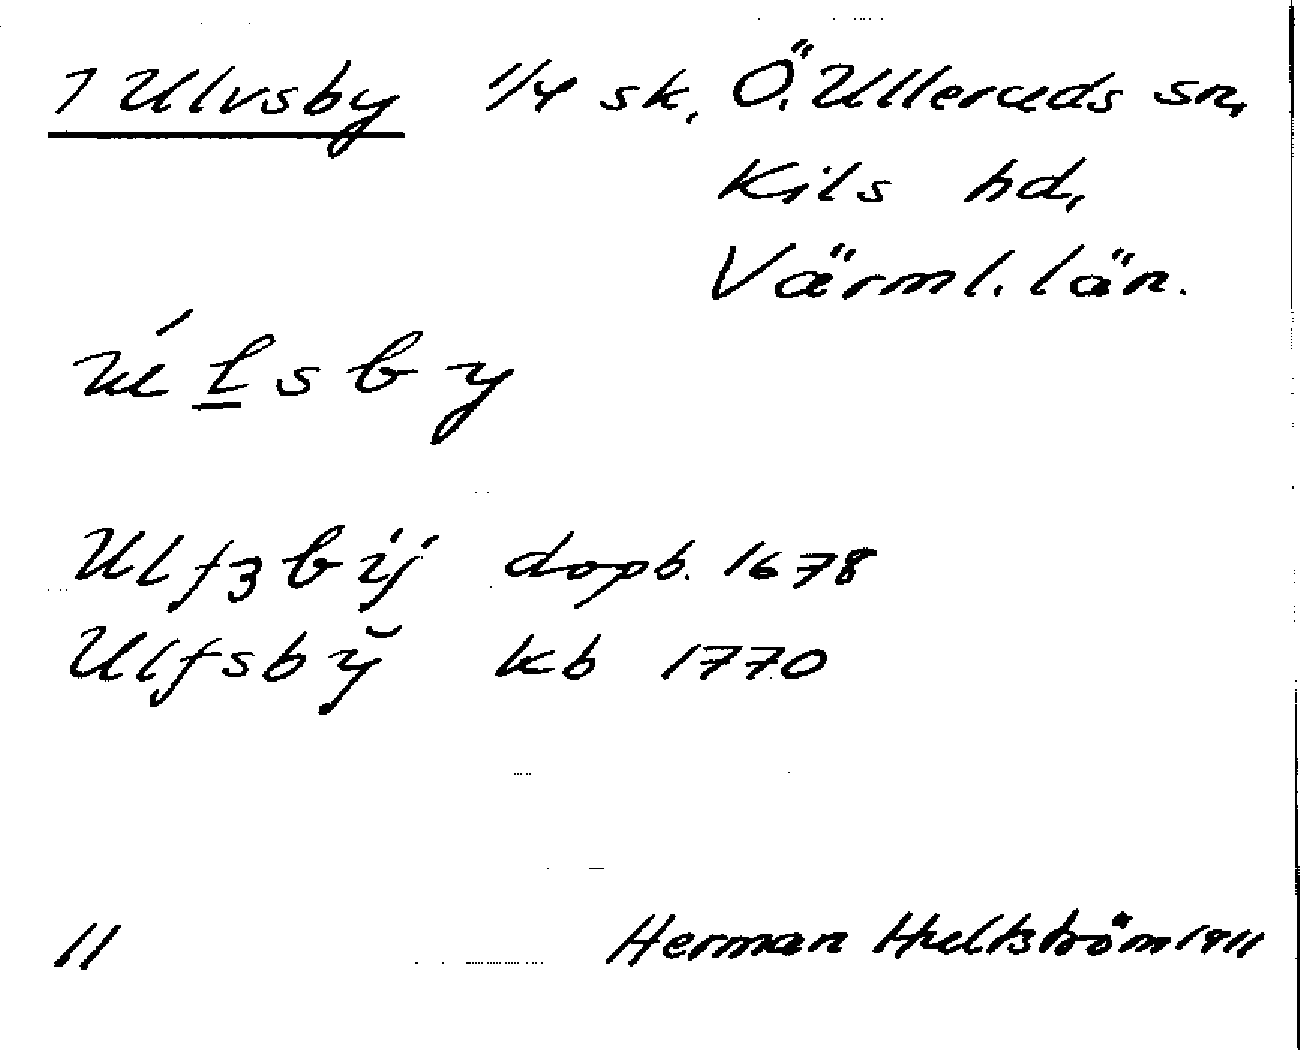 1 Ulvsby 1/4 sk. Ö. Ulleruds sn,
Kils hd,
Värml. län.
úlsby
Ulfzbij dopb. 1678
Ulfsbÿ kb 1770
11 Herman Hultström 1911